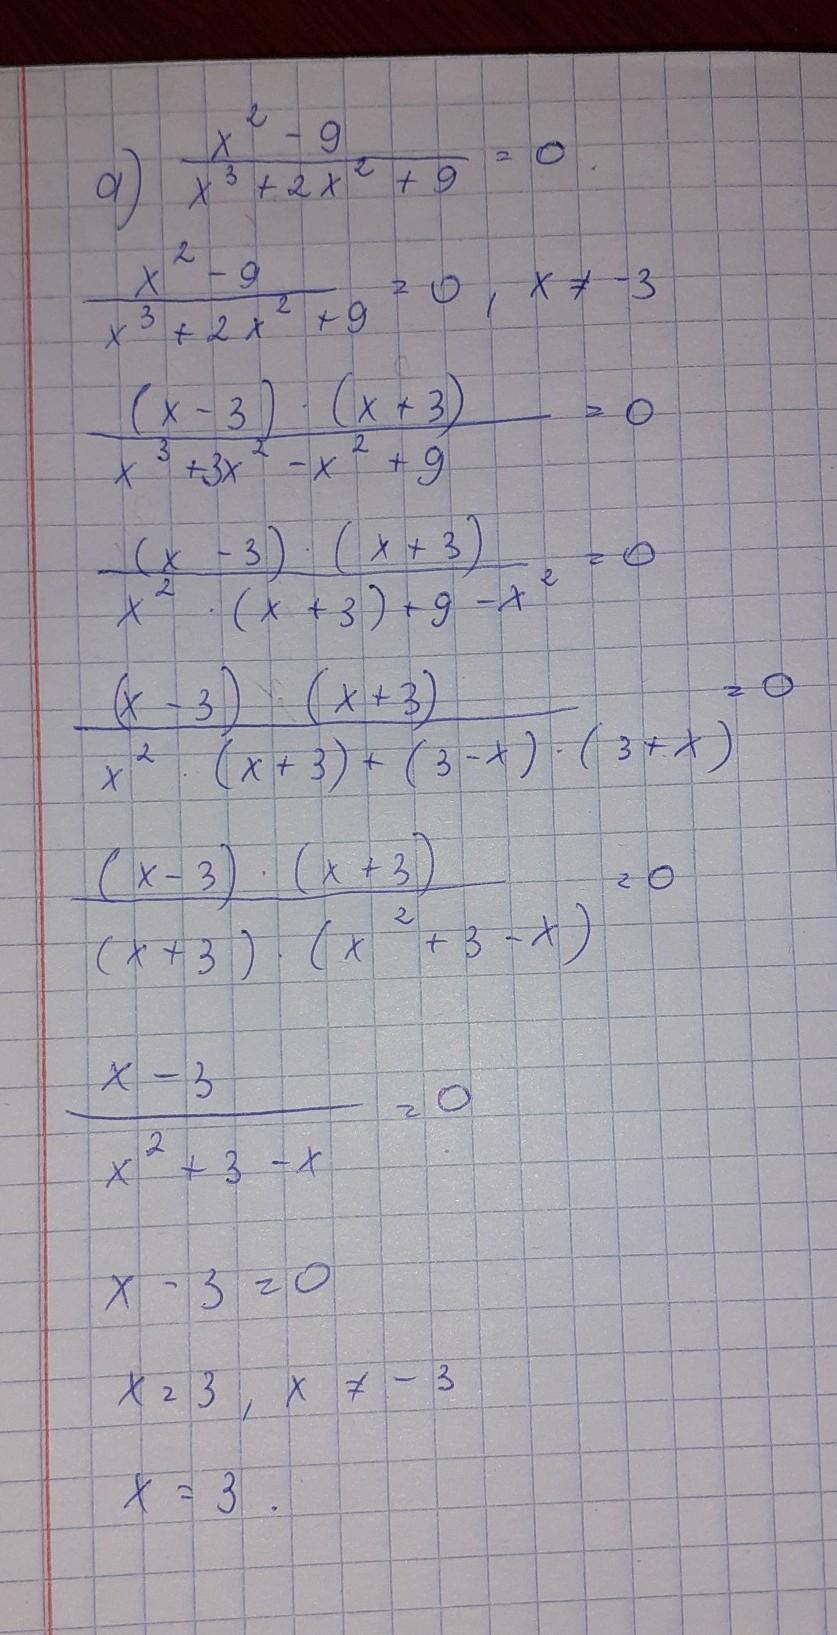 a) (x² - 9)/(x³ + 2x² + 9) = 0.
(x² - 9)/(x³ + 2x² + 9) = 0, x ≠ -3
((x - 3) · (x + 3))/(x³ + 3x² - x² + 9) = 0
((x - 3) · (x + 3))/(x² · (x + 3) + 9 - x²) = 0
((x - 3) · (x + 3))/(x² · (x + 3) + (3 - x) · (3 + x)) = 0
((x - 3) · (x + 3))/((x + 3) · (x² + 3 - x)) = 0
(x - 3)/(x² + 3 - x) = 0
x - 3 = 0
x = 3, x ≠ -3
x = 3.